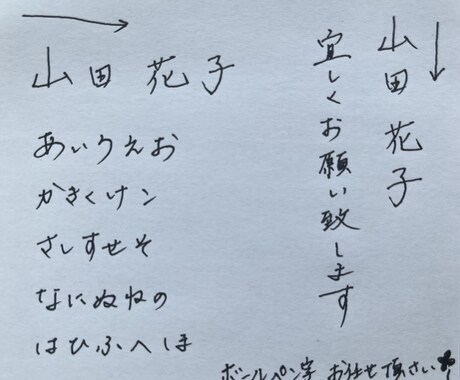 山田 花子
あいうえお
かきくけこ
さしすせそ
なにぬねの
はひふへほ
山田 花子
宜しくお願い致します
ボールペン字 お任せ頂さい